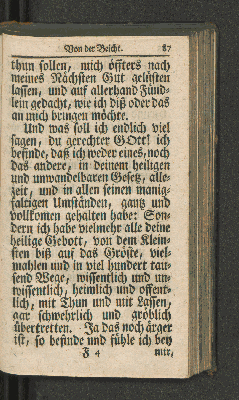 Von der Beicht. 87
thun sollen, mich öffters nach
meines Nächsten Gut gelüsten
lassen, und auf allerhand Fünd-
lein gedacht, wie ich diß oder das
an mich bringen möchte.
Und was soll ich endlich viel
sagen, du gerechter GOtt! ich
befinde, daß ich weder eines, noch
das andere, in deinem heiligen
und unwandelbaren Gesetz, alle-
zeit, und in allen seinen manig-
faltigen Umständen, gantz und
vollkomen gehalten habe: Son-
dern ich habe vielmehr alle deine
heilige Gebott, von dem Klein-
sten biß auf das Gröste, viel-
mahlen und in viel hundert tau-
send Wege, wissentlich und un-
wissentlich, heimlich und offent-
lich, mit Thun und mit Lassen,
gar schwehrlich und gröblich
übertretten. Ja das noch ärger
ist, so befinde und fühle ich bey
F 4 mir,